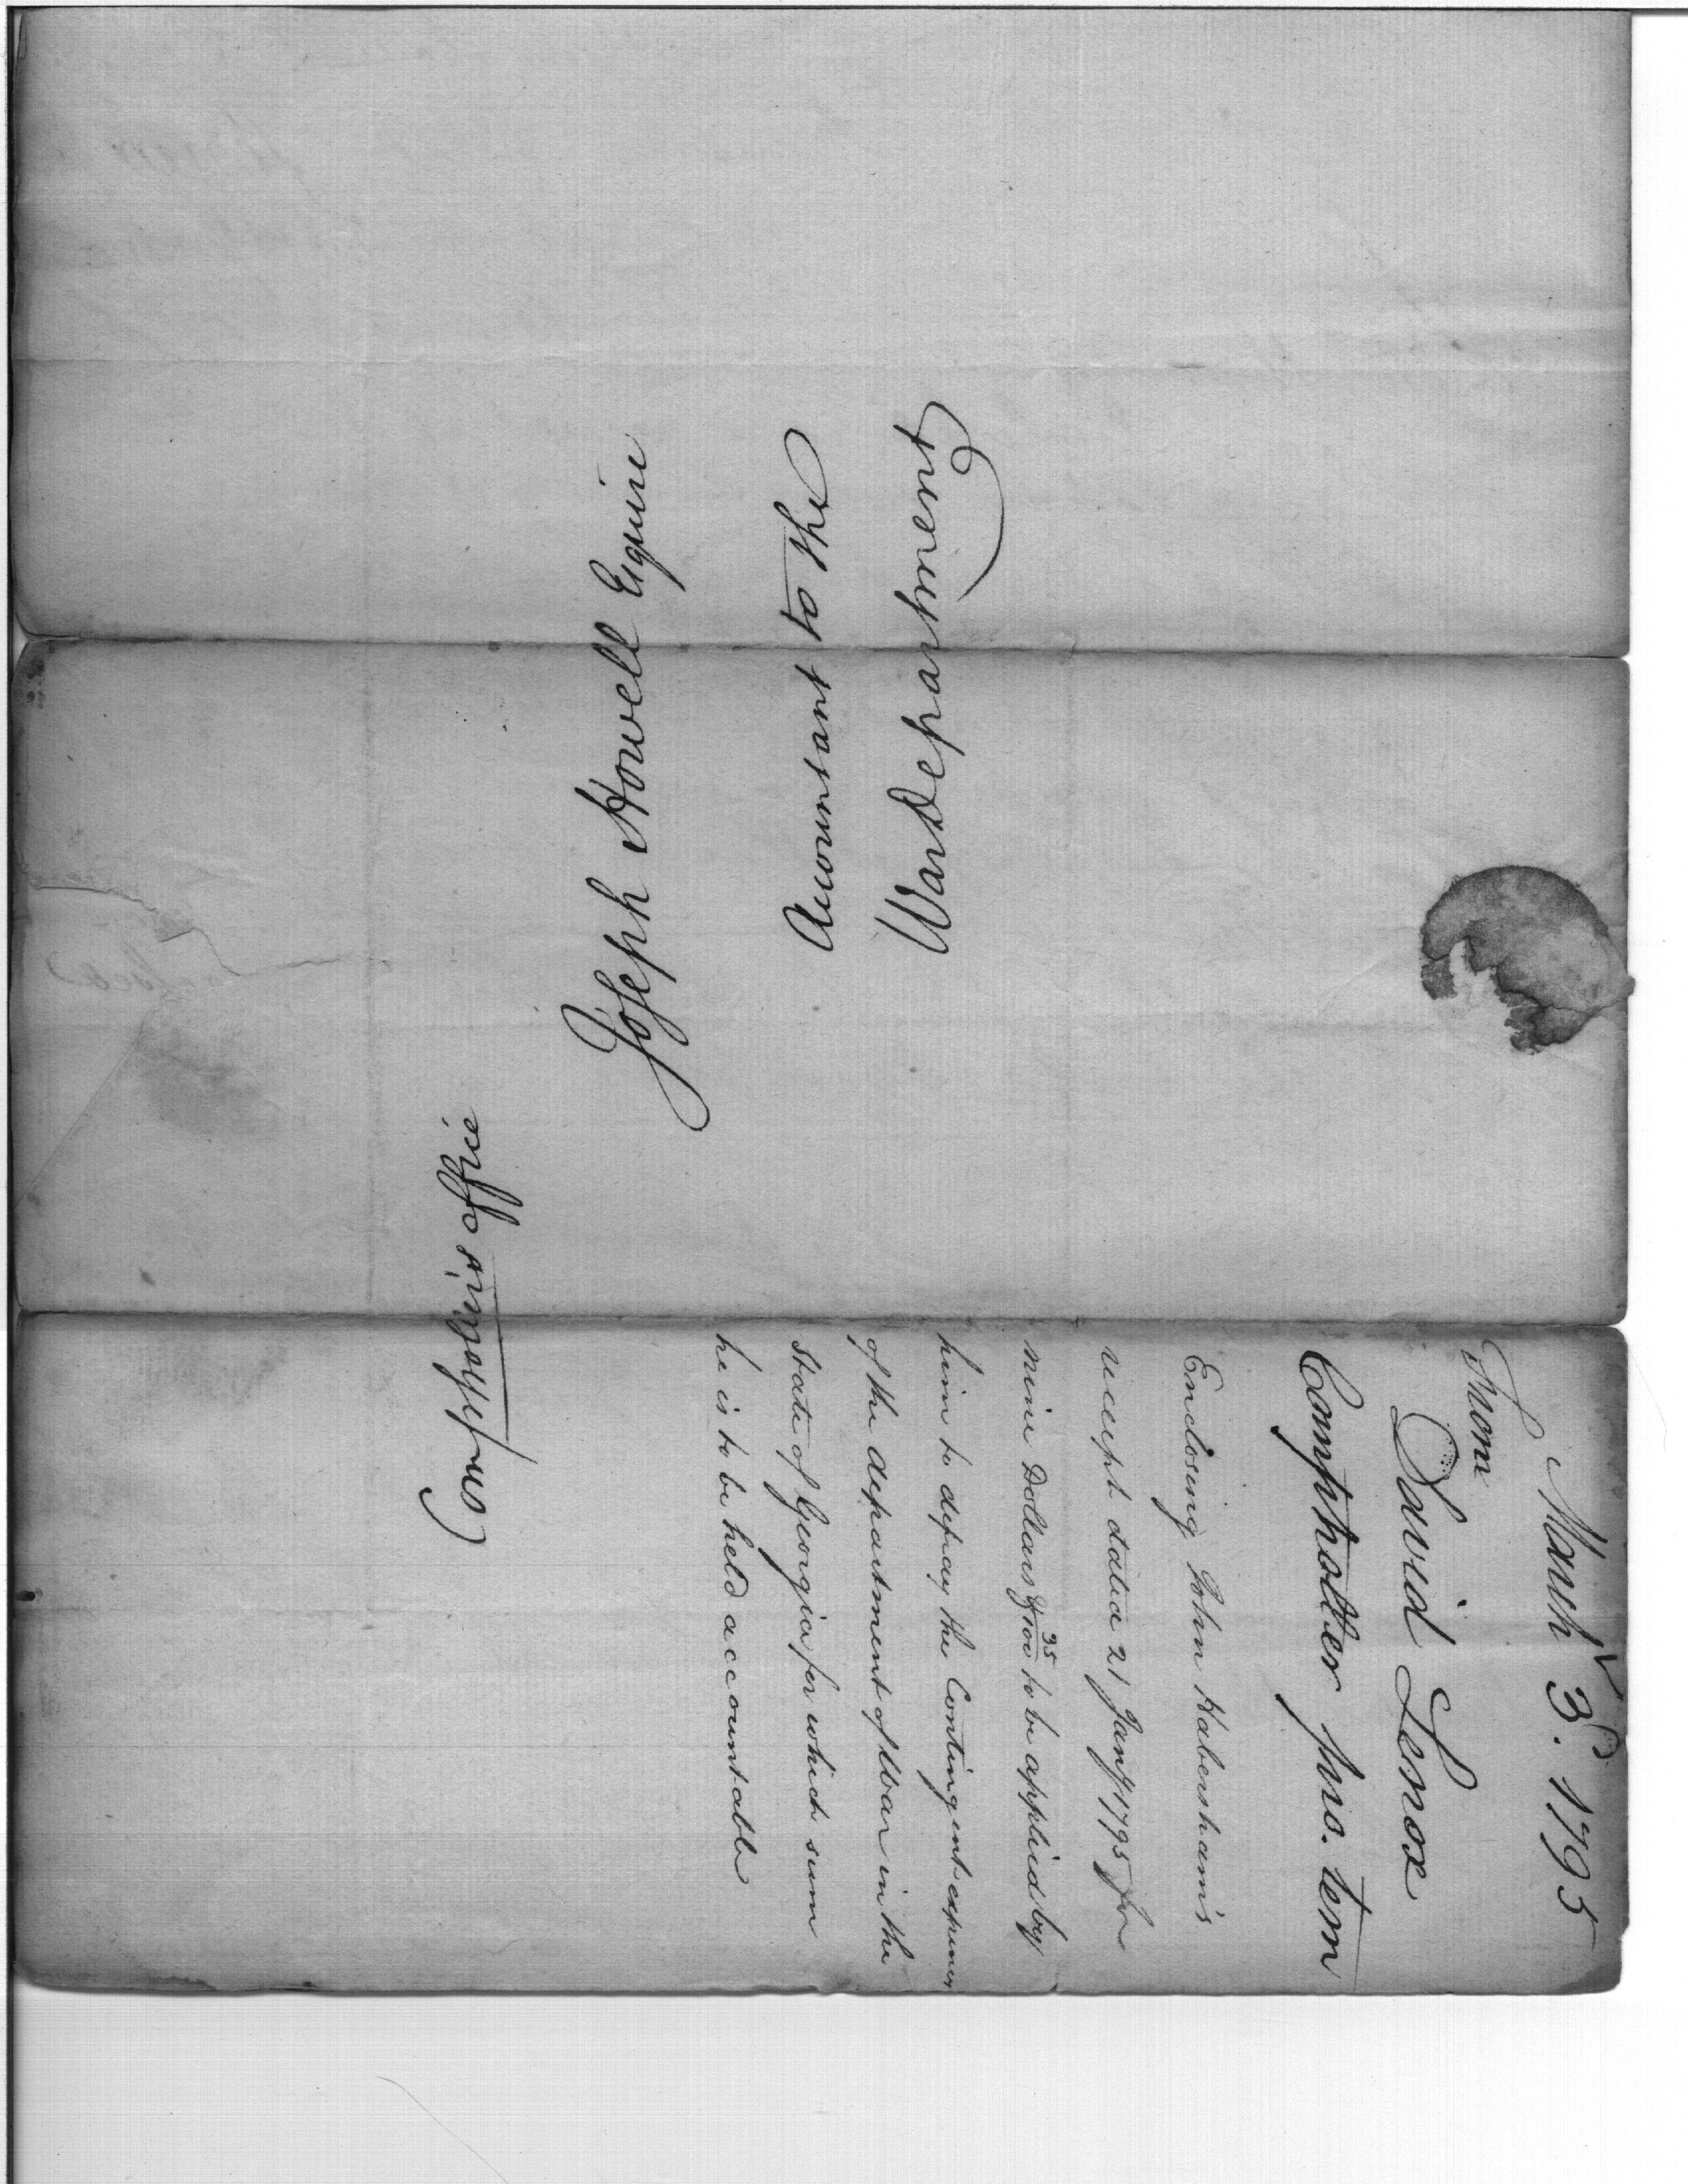 Comptrollers office
Joseph Howell Esquire
Accountant to the
War Department
March 3d. 1795
From
David Lenox
Comptroller pro. tem
Enclosing John Habersham's
receipt dated 21 Jany 1795 for
nine Dollars & 35/100 to be applied by
him to defray the Contingent expenses
of the department of War in the
State of Georgia for which sum
he is to be held accountable